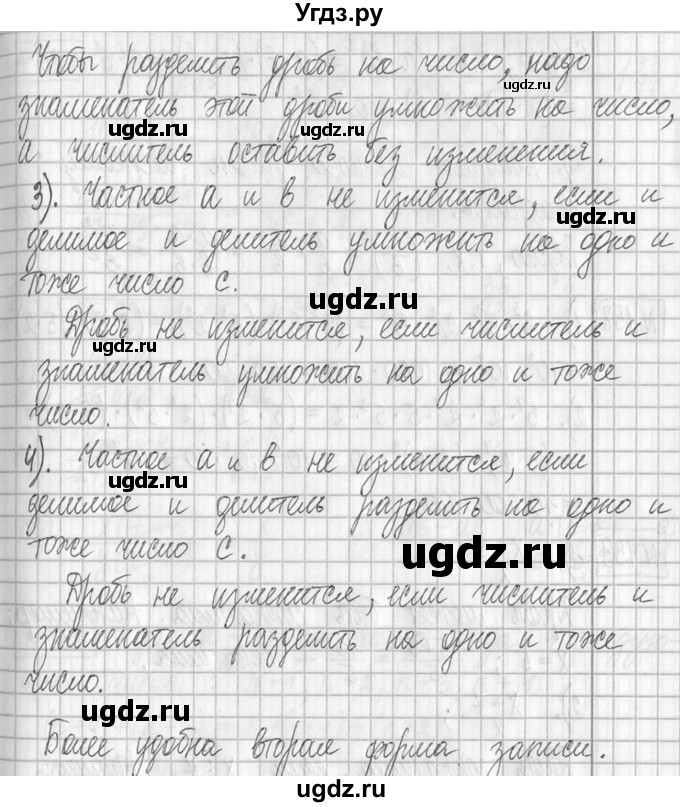 Угдз.ру
Чтобы разделить дробь на число, надо
ugdz.ru
знаменатель этой дроби умножить на число,
ugdz.ru ugdz.ru
а числитель оставить без изменения.
3). Частное а и в не изменится, если и
ugdz.ru
делимое и делитель умножить на одно и
тоже число С.
ugdz.ru
Дробь не изменится, если числитель и
ugdz.ru
знаменатель умножить на одно и тоже
число.
4). Частное а и в не изменится, если
делимое и делитель разделить на одно и
тоже число С.
ugdz.ru
Дробь не изменится, если числитель и
знаменатель разделить на одно и тоже
число.
ugdz.ru
Более удобна вторая форма записи.
ugdz.ru